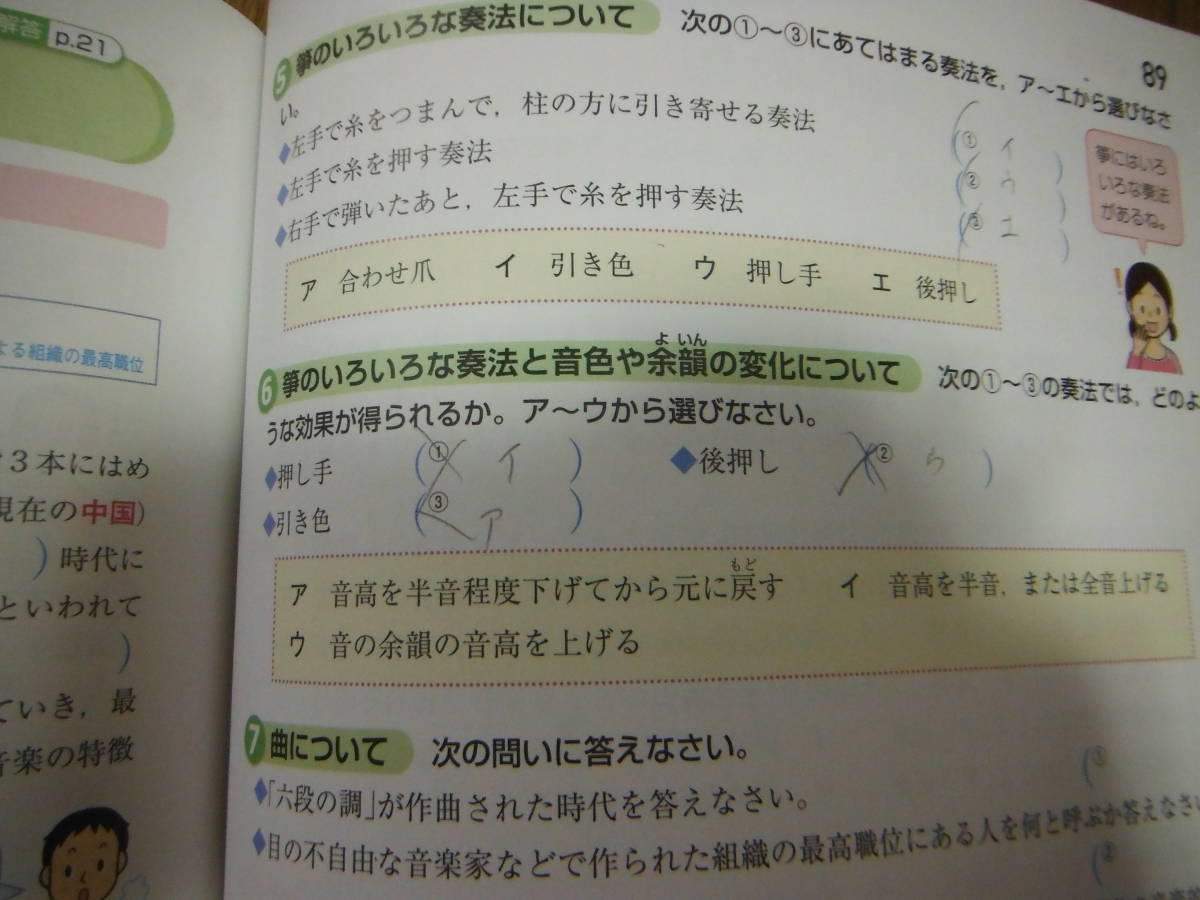 解答 p.21
よる組織の最高職位
3本にはめ
現在の中国)
)時代に
といわれて
)
ていき,最
音楽の特徴
89
5 箏のいろいろな奏法について 次の①~③にあてはまる奏法を,ア~エから選びなさ
い。
◆左手で糸をつまんで,柱の方に引き寄せる奏法 (① イ )
◆左手で糸を押す奏法 (② ウ )
◆右手で弾いたあと,左手で糸を押す奏法 (③ エ )
箏にはいろ
いろな奏法
があるね。
ア 合わせ爪 イ 引き色 ウ 押し手 エ 後押し
6 箏のいろいろな奏法と音色や余韻の変化について 次の①~③の奏法では,どのよ
よいん
うな効果が得られるか。ア~ウから選びなさい。
◆押し手 (① イ ) ◆後押し (② う )
◆引き色 (③ ア )
ア 音高を半音程度下げてから元に戻す イ 音高を半音,または全音上げる
もど
ウ 音の余韻の音高を上げる
7 曲について 次の問いに答えなさい。
◆「六段の調」が作曲された時代を答えなさい。 (①
◆目の不自由な音楽家などで作られた組織の最高職位にある人を何と呼ぶか答えなさい
(②